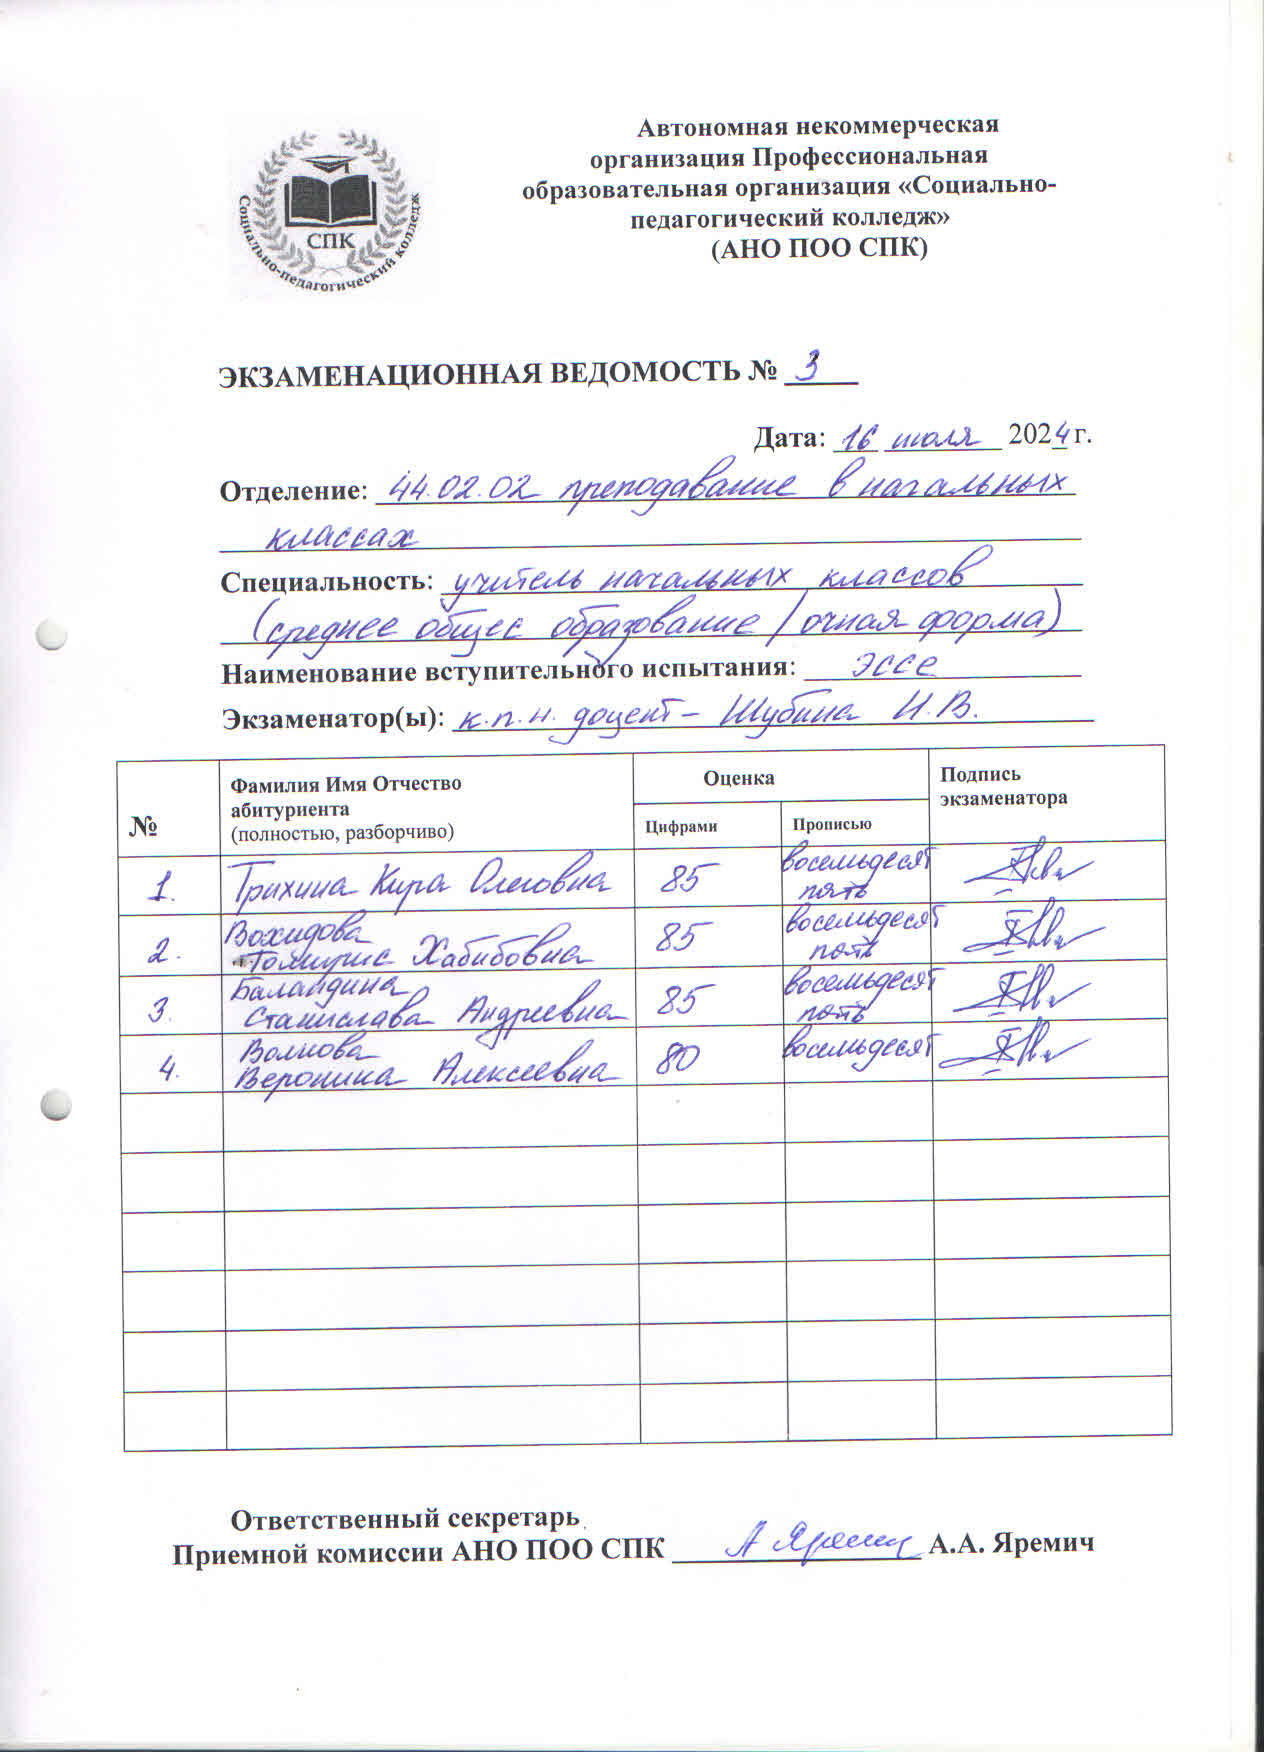 Автономная некоммерческая
организация Профессиональная
образовательная организация «Социально-
педагогический колледж»
(АНО ПОО СПК)
СПК
Социально-педагогический колледж
ЭКЗАМЕНАЦИОННАЯ ВЕДОМОСТЬ № 3
Дата: 16 июля 2024 г.
Отделение: 44.02.02 преподавание в начальных
классах
Специальность: учитель начальных классов
(среднее общее образование / очная форма)
Наименование вступительного испытания: эссе
Экзаменатор(ы): к.п.н. доцент - Шубина И.В.
№ Фамилия Имя Отчество абитуриента (полностью, разборчиво) Оценка Цифрами Прописью Подпись экзаменатора
1. Трихина Кира Олеговна 85 восемьдесят пять
2. Вохидова Томирис Хабибовна 85 восемьдесят пять
3. Баландина Станислава Андреевна 85 восемьдесят пять
4. Волкова Вероника Алексеевна 80 восемьдесят
Ответственный секретарь
Приемной комиссии АНО ПОО СПК А Яремич А.А. Яремич